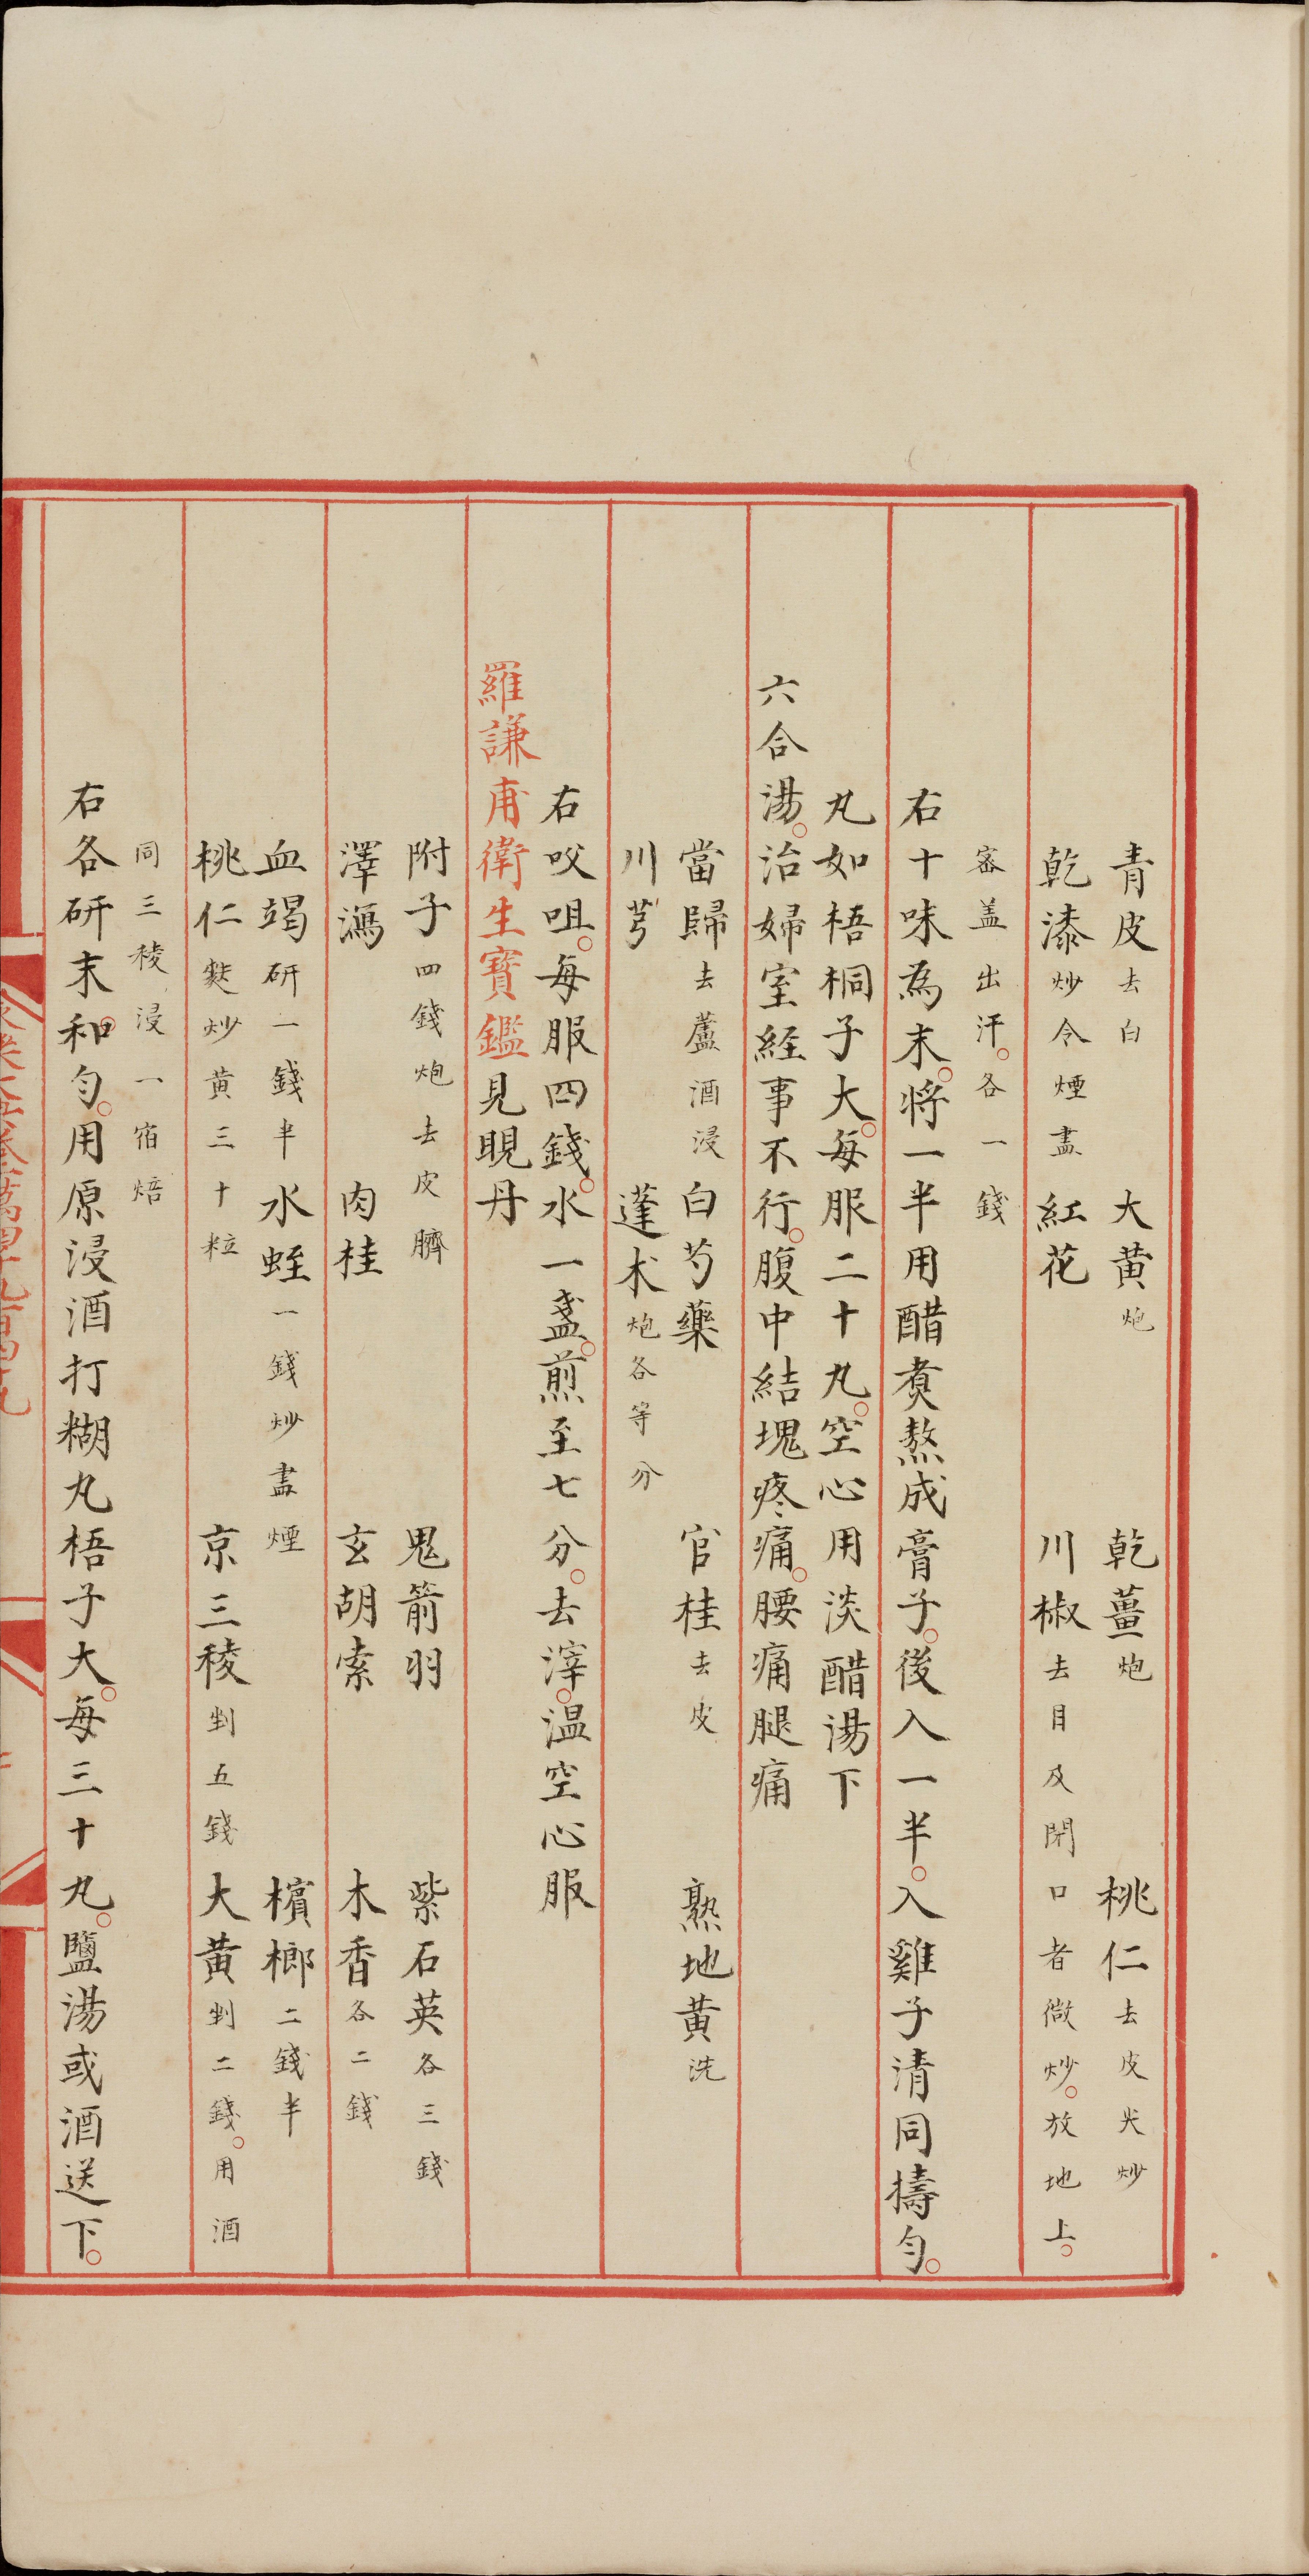 青皮去白 大黄炮 乾薑炮 桃仁去皮尖炒
乾漆炒令煙盡 紅花 川椒去目及閉口者微炒。放地上。
密盖出汗。各一錢
右十味為末。將一半用醋煑熬成膏子。後入一半。入雞子清同擣勻。
丸如梧桐子大。每服二十丸。空心用淡醋湯下
六合湯。治婦室経事不行。腹中結塊疼痛。腰痛腿痛
當歸去蘆酒浸 白芍藥 官桂去皮 熟地黄洗
川芎 蓬朮炮各等分
右㕮咀。每服四錢。水一盞。煎至七分。去滓。温空心服
羅謙甫衛生寳鑑見晛丹
附子四錢炮去皮臍 鬼箭羽 紫石英各三錢
澤瀉 肉桂 玄胡索 木香各二錢
血竭研一錢半 水蛭一錢炒盡煙 檳榔二錢半
桃仁麩炒黄三十粒 京三稜剉五錢 大黄剉二錢。用酒
同三稜浸一宿焙
右各研末。和勻。用原浸酒打糊丸梧子大。每三十丸。鹽湯或酒送下。